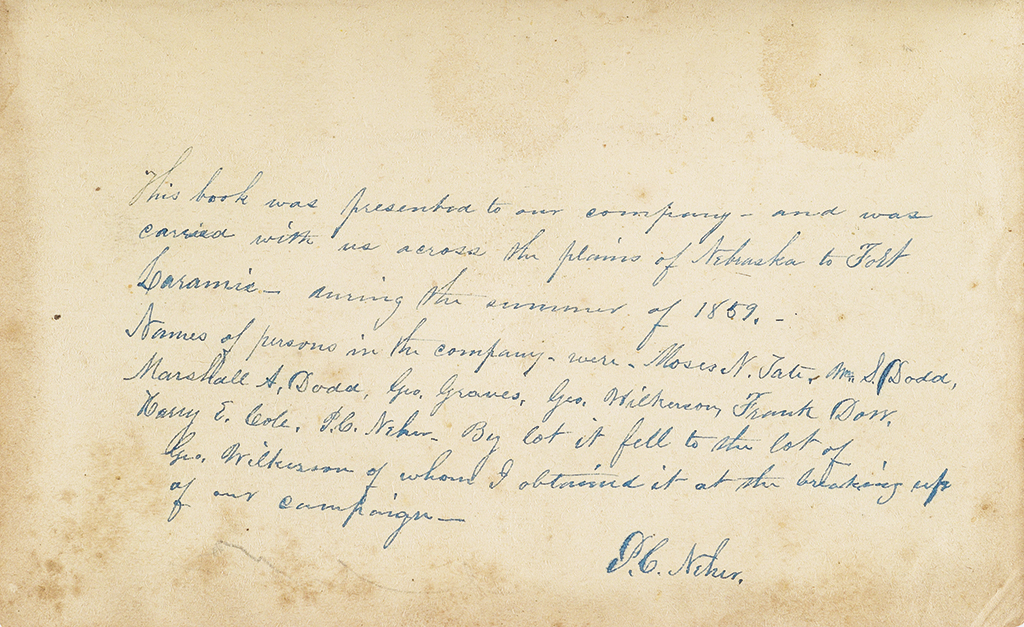 This book was presented to our company - and was
carried with us across the plains of Nebraska to Fort
Laramie - during the summer of 1859. -
Names of persons in the company - were - Moses N. Tate, Wm. S. Dodd,
Marshall A. Dodd, Geo. Graves, Geo. Wilkerson, Frank Dorr,
Harry E. Cole, P.C. Neher - By lot it fell to the lot of
Geo. Wilkerson of whom I obtained it at the breaking up
of our campaign -
P.C. Neher.